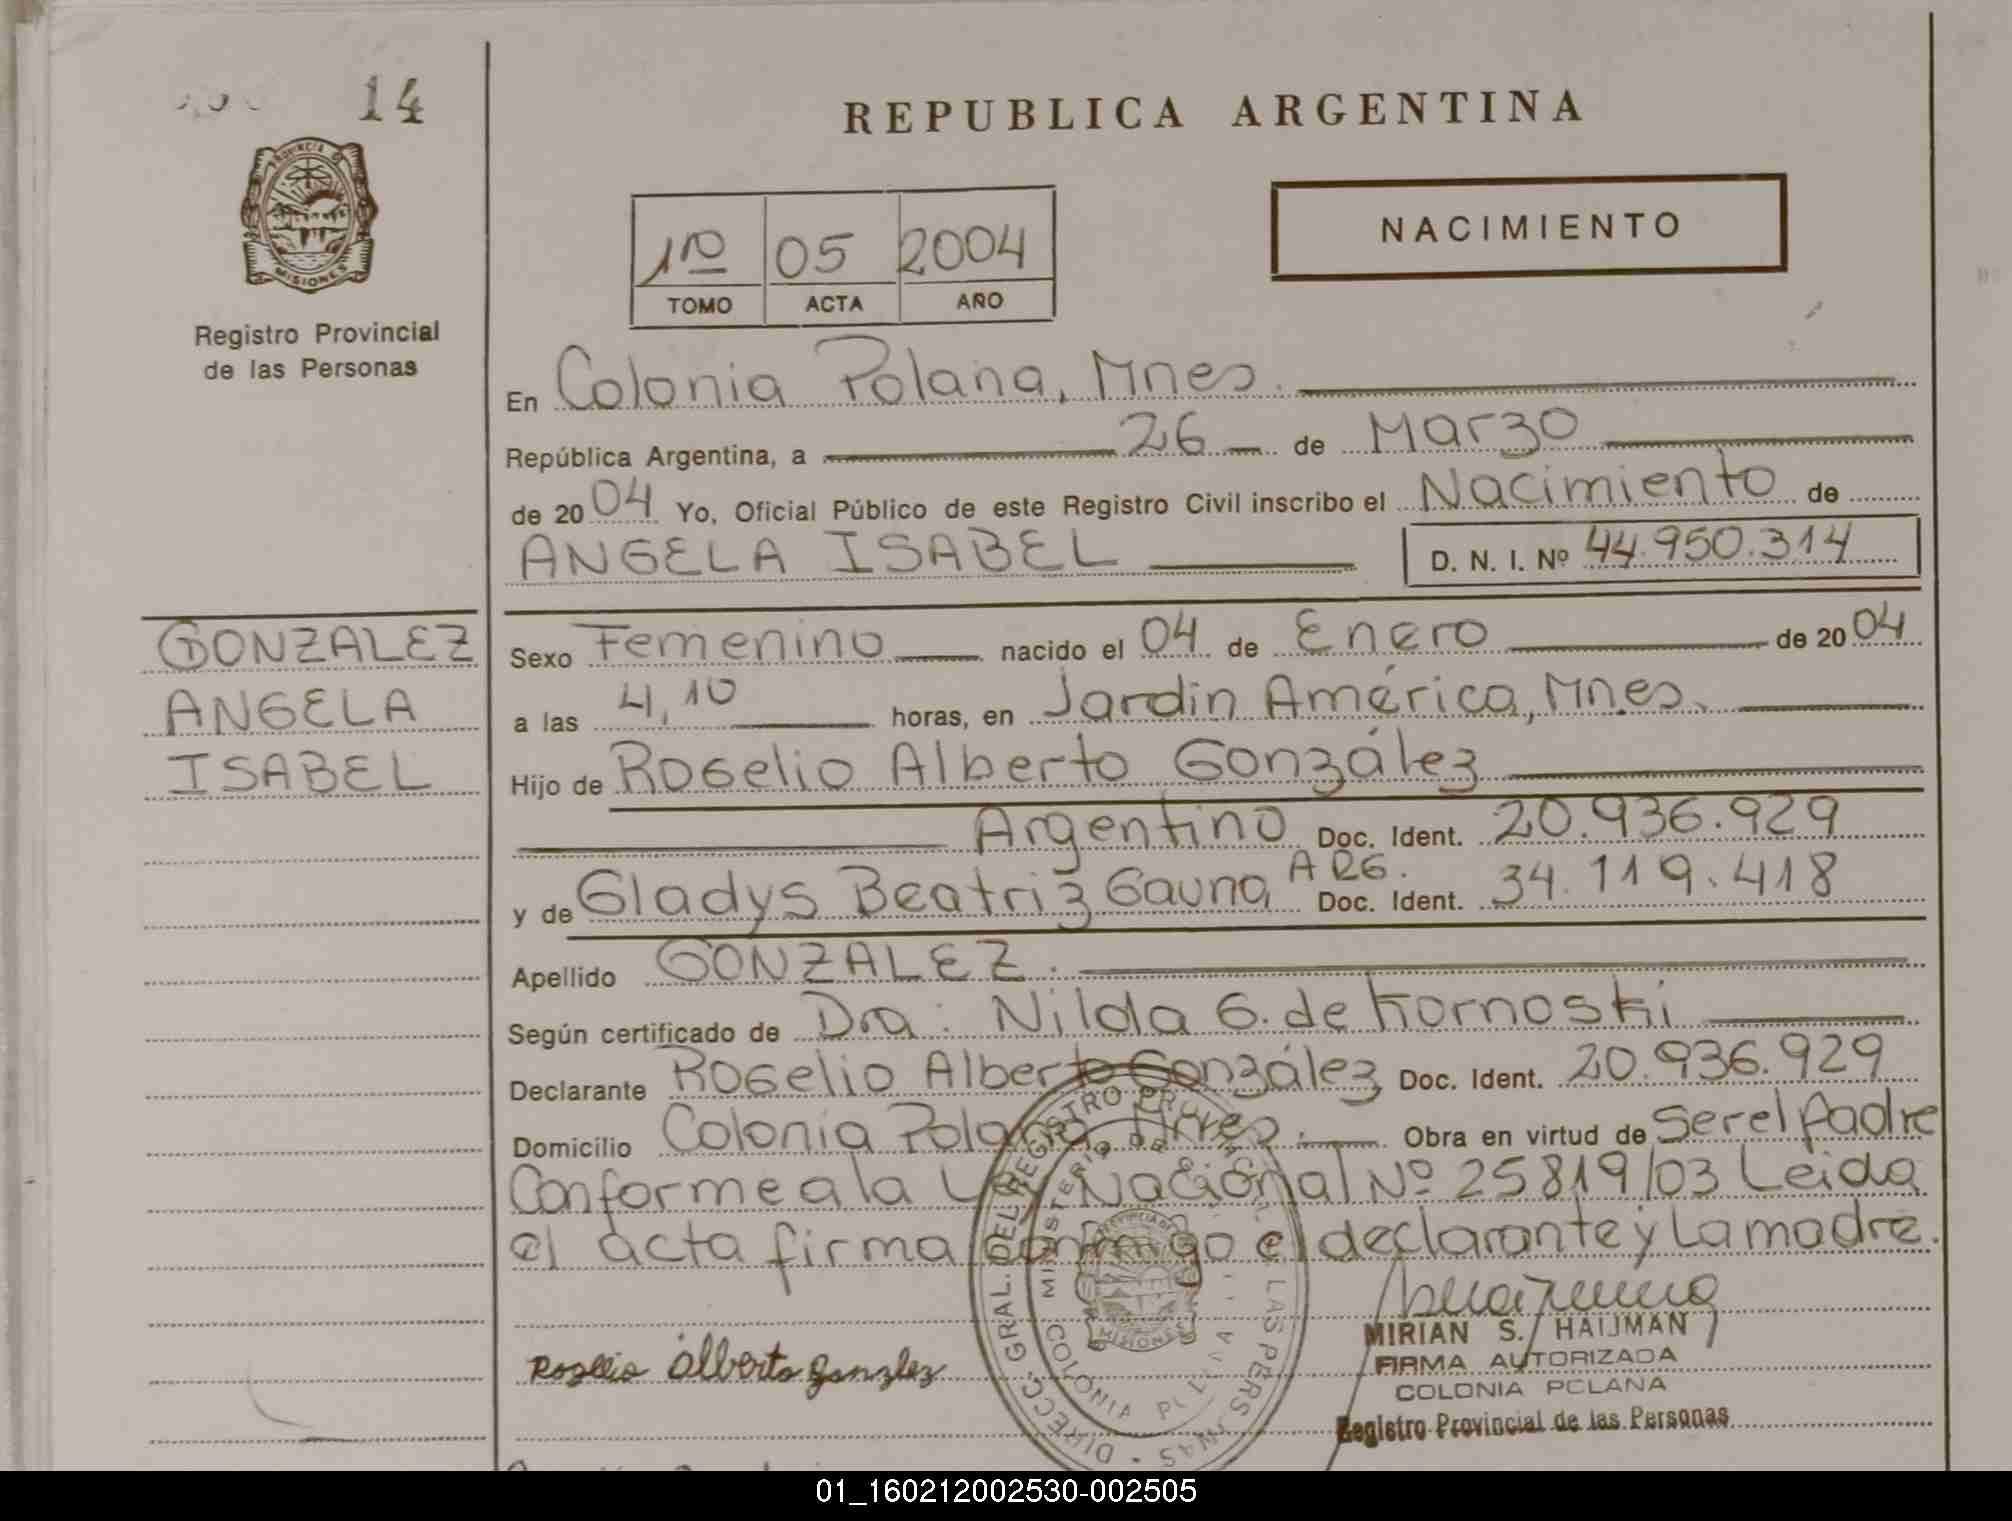 14
PROVINCIA DE
MISIONES
Registro Provincial
de las Personas
REPUBLICA ARGENTINA
NACIMIENTO
1ro 05 2004
TOMO ACTA AÑO
En Colonia Polana, Mnes.
República Argentina, a 26 de Marzo
de 2004 Yo, Oficial Público de este Registro Civil inscribo el Nacimiento de
ANGELA ISABEL D. N. I. Nº 44.950.314
GONZALEZ
ANGELA
ISABEL
Sexo Femenino nacido el 04 de Enero de 2004
a las 4,10 horas, en Jardin América, Mnes.
Hijo de Rogelio Alberto González
Argentino Doc. Ident. 20.936.929
y de Gladys Beatriz Gauna ARG. Doc. Ident. 34.119.418
Apellido GONZALEZ.
Según certificado de Dra. Nilda G. de Kornoski
Declarante Rogelio Alberto González Doc. Ident. 20.936.929
Domicilio Colonia Polana Mnes. Obra en virtud de ser el padre
Conforme a la Ley Nacional Nº 25819/03 Leida
el acta firma conmigo el declarante y La madre.
Rogelio Alberto Gonzlez
DIRECC. GRAL. DEL REGISTRO PROV. DE LAS PERSONAS
MINISTERIO DE
COLONIA POLANA
MISIONES
MIRIAN S. HAIJMAN
FIRMA AUTORIZADA
COLONIA POLANA
Registro Provincial de las Personas
01_160212002530-002505